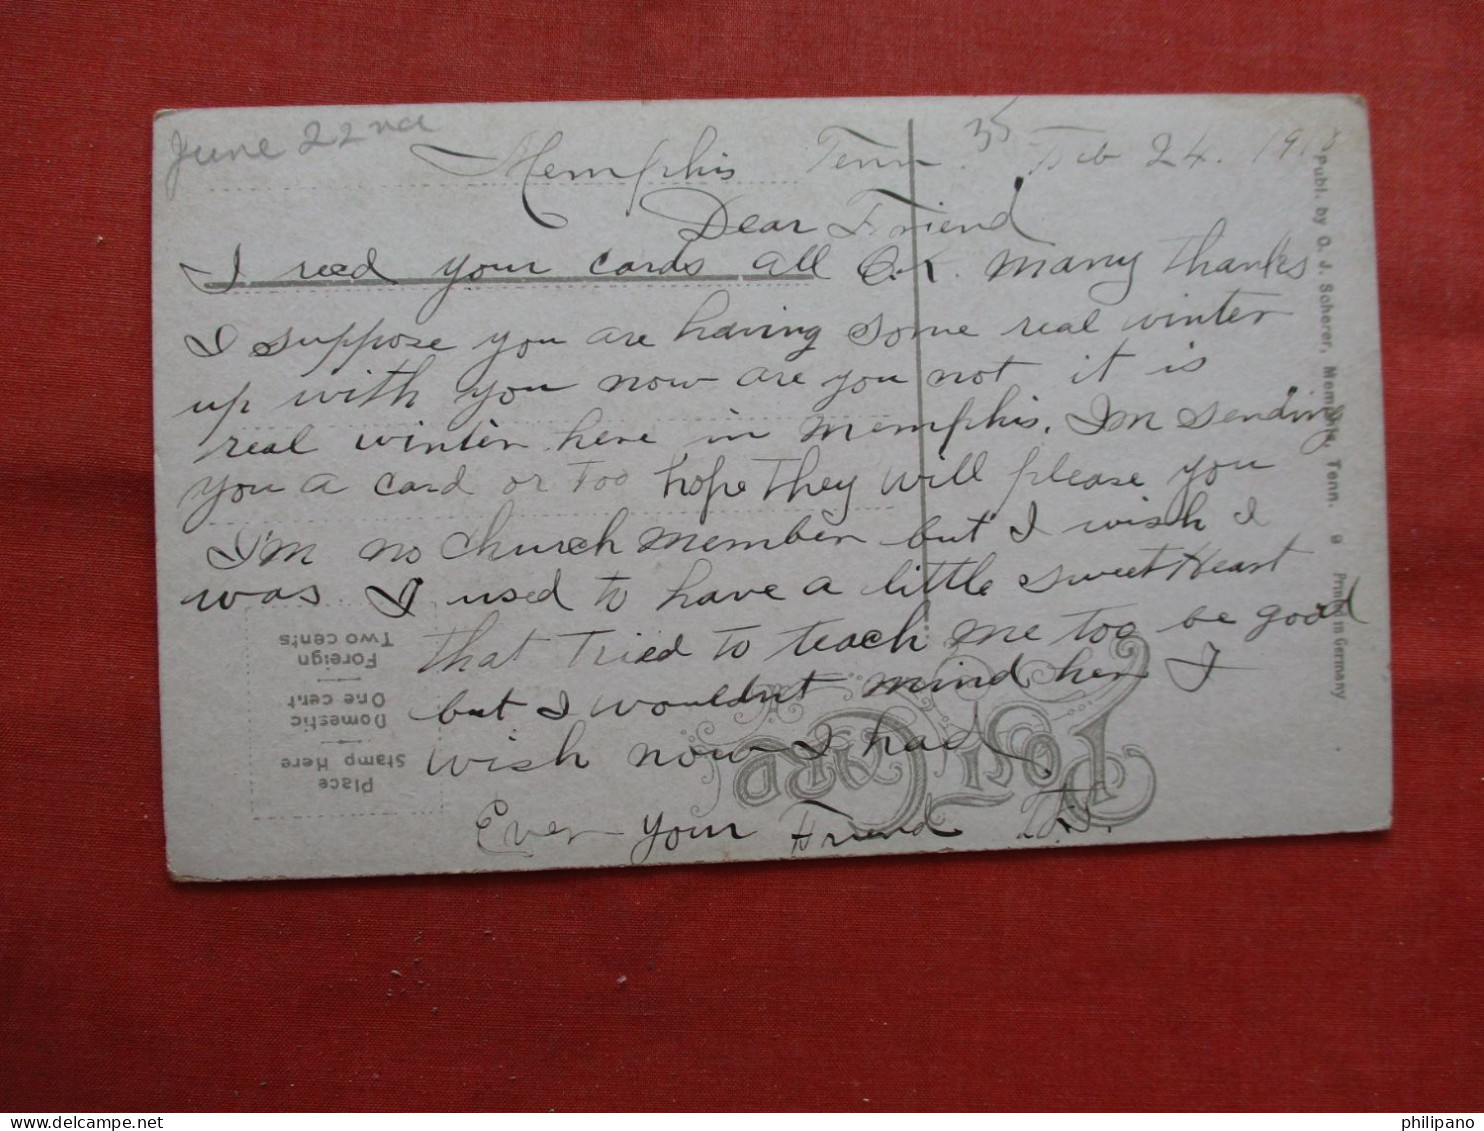 June 22nd
Memphis Tenn. 35 Feb 24. 191
Dear Friend
I recd your cards all O.K. many thanks
I suppose you are having some real winter
up with you now are you not it is
real winter here in Memphis. Im sending
you a card or Too hope They will please you
I'm no Church member but I wish I
was. I used to have a little sweet Heart
that Tried to teach me too be good
but I wouldnt mind her I
wish now I had.
Ever your Friend
Publ. by O. J. Scherer, Memphis, Tenn. 9 Printed in Germany
Post Card
Place
Stamp Here
Domestic
One cent
Foreign
Two cents
philipano